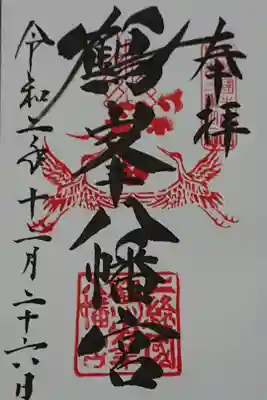 奉拝
鶴峯八幡宮
令和二年十一月二十六日